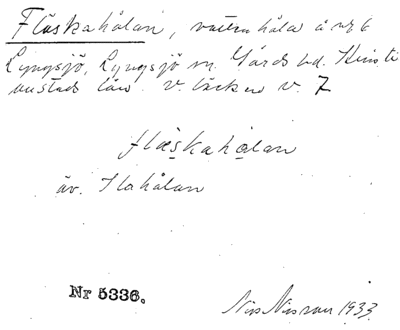 Fläskahålan, vattenhåla å nr 6
Lyngsjö, Lyngsjö sn. Gärds hd. Kristi
anstads län. v. täcken v. 7
flæskahålan
äv. Flahålan
Nr 5336.
Nils Nilsson 1933.